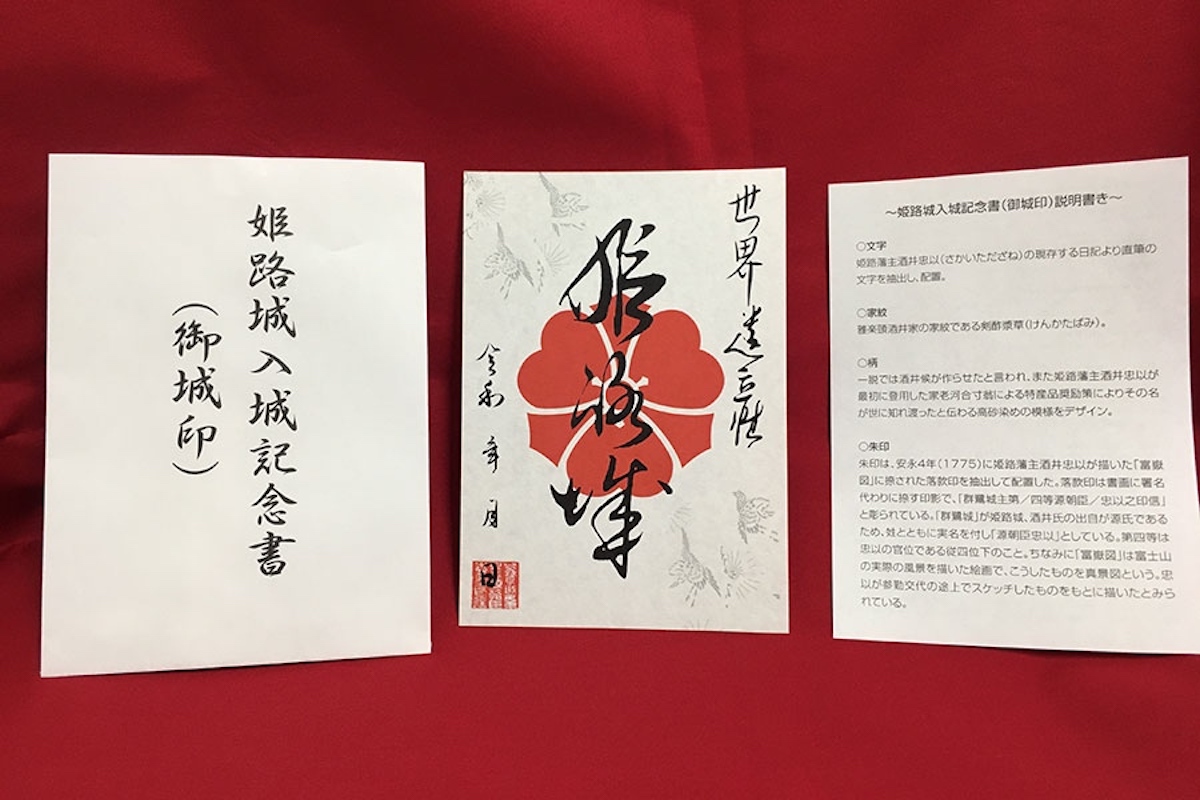 姫路城入城記念書
（御城印）
世界遺産
姫路城
令和 年 月 日
～姫路城入城記念書（御城印）説明書き～
○文字
姫路藩主酒井忠以（さかいただざね）の現存する日記より直筆の
文字を抽出し、配置。
○家紋
雅楽頭酒井家の家紋である剣酢漿草（けんかたばみ）。
○柄
一説では酒井候が作らせたと言われ、また姫路藩主酒井忠以が
最初に登用した家老河合寸翁による特産品奨励策によりその名
が世に知れ渡ったと伝わる高砂染めの模様をデザイン。
○朱印
朱印は、安永4年（1775）に姫路藩主酒井忠以が描いた「富嶽
図」に捺された落款印を抽出して配置した。落款印は書画に署名
代わりに捺す印影で、「群鷺城主第／四等源朝臣／忠以之印信」
と彫られている。「群鷺城」が姫路城、酒井氏の出自が源氏である
ため、姓とともに実名を付し「源朝臣忠以」としている。第四等は
忠以の官位である従四位下のこと。ちなみに「富嶽図」は富士山
の実際の風景を描いた絵画で、こうしたものを真景図という。忠
以が参勤交代の途上でスケッチしたものをもとに描いたとみら
れている。